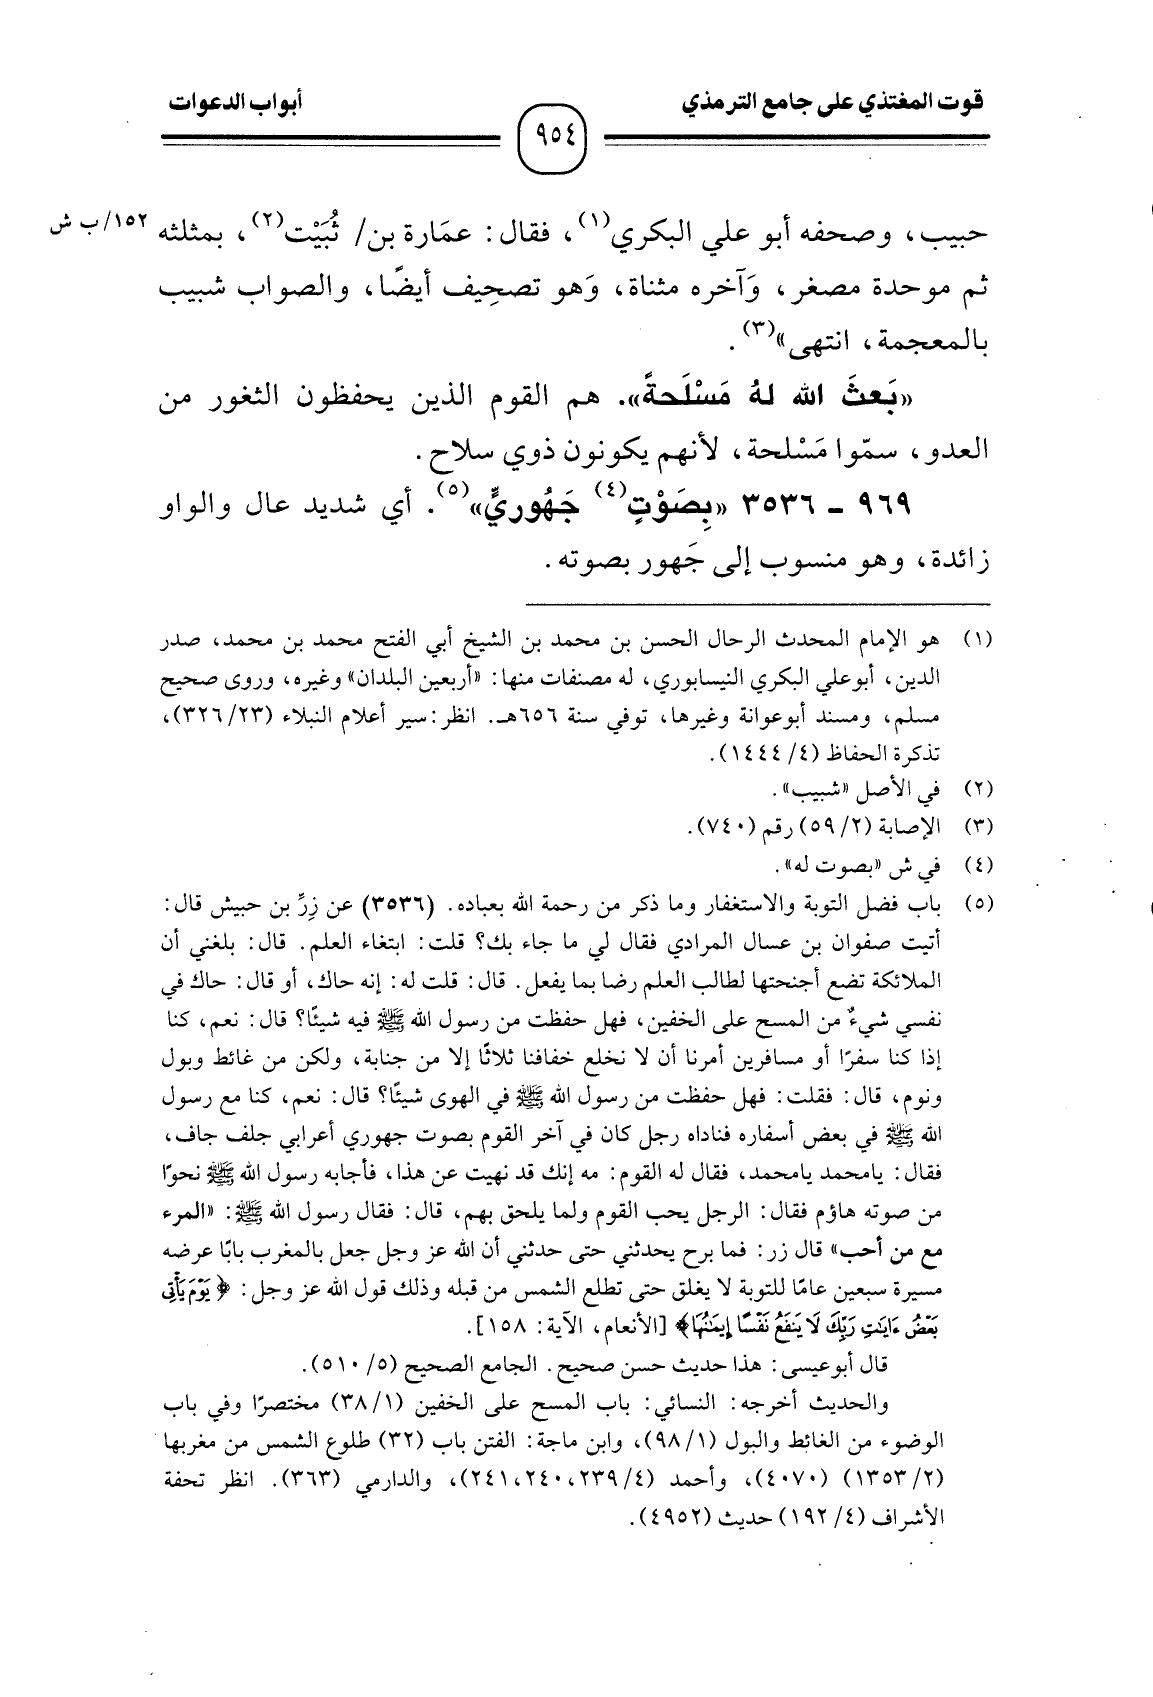 قوت المغتذي على جامع الترمذي
٩٥٤
أبواب الدعوات
حبيب، وصحفه أبو علي البكري(١)، فقال: عمَارة بن/ ثُبَيْت(٢)، بمثلثه ١٥٢/ ب ش
ثم موحدة مصغر، وَآخره مثناة، وَهو تصحِيف أيضًا، والصواب شبيب
بالمعجمة، انتهى»(٣).
«بَعثَ الله لهُ مَسْلَحةً». هم القوم الذين يحفظون الثغور من
العدو، سمّوا مَسْلحة، لأنهم يكونون ذوي سلاح.
٩٦٩ ـ ٣٥٣٦ «بِصَوْتٍ(٤) جَهُوريٍّ»(٥). أي شديد عال والواو
زائدة، وهو منسوب إلى جَهور بصوته.
(١) هو الإمام المحدث الرحال الحسن بن محمد بن الشيخ أبي الفتح محمد بن محمد، صدر
الدين، أبوعلي البكري النيسابوري، له مصنفات منها: «أربعين البلدان» وغيره، وروى صحيح
مسلم، ومسند أبوعوانة وغيرها، توفي سنة ٦٥٦هـ. انظر:سير أعلام النبلاء (٣٢٦/٢٣)،
تذكرة الحفاظ (٤/ ١٤٤٤).
(٢) في الأصل «شبيب».
(٣) الإصابة (٥٩/٢) رقم (٧٤٠).
(٤) في ش «بصوت له».
(٥) باب فضل التوبة والاستغفار وما ذكر من رحمة الله بعباده. (٣٥٣٦) عن زِرِّ بن حبيش قال:
أتيت صفوان بن عسال المرادي فقال لي ما جاء بك؟ قلت: ابتغاء العلم. قال: بلغني أن
الملائكة تضع أجنحتها لطالب العلم رضا بما يفعل. قال: قلت له: إنه حاك، أو قال: حاك في
نفسي شيءٌ من المسح على الخفين، فهل حفظت من رسول الله ﷺ فيه شيئًا؟ قال: نعم، كنا
إذا كنا سفرًا أو مسافرين أمرنا أن لا نخلع خفافنا ثلاثًا إلا من جنابة، ولكن من غائط وبول
ونوم، قال: فقلت: فهل حفظت من رسول الله ﷺ في الهوى شيئًا؟ قال: نعم، كنا مع رسول
الله ﷺ في بعض أسفاره فناداه رجل كان في آخر القوم بصوت جهوري أعرابي جلف جاف،
فقال: يامحمد يامحمد، فقال له القوم: مه إنك قد نهيت عن هذا، فأجابه رسول الله ﷺ نحوًا
من صوته هاؤم فقال: الرجل يحب القوم ولما يلحق بهم، قال: فقال رسول الله ﷺ: «المرء
مع من أحب» قال زر: فما برح يحدثني حتى حدثني أن الله عز وجل جعل بالمغرب بابًا عرضه
مسيرة سبعين عامًا للتوبة لا يغلق حتى تطلع الشمس من قبله وذلك قول الله عز وجل: ﴿يَوْمَ يَأْتِى
بَعْضُ ءَايَٰتِ رَبِّكَ لَا يَنفَعُ نَفْسًا إِيمَٰنُهَا﴾ [الأنعام، الآية: ١٥٨].
قال أبوعيسى: هذا حديث حسن صحيح. الجامع الصحيح (٥/ ٥١٠).
والحديث أخرجه: النسائي: باب المسح على الخفين (٣٨/١) مختصرًا وفي باب
الوضوء من الغائط والبول (٩٨/١)، وابن ماجة: الفتن باب (٣٢) طلوع الشمس من مغربها
(٢/ ١٣٥٣) (٤٠٧٠)، وأحمد (٤/ ٢٣٩،٢٤٠،٢٤١)، والدارمي (٣٦٣). انظر تحفة
الأشراف (٤/ ١٩٢) حديث (٤٩٥٢).